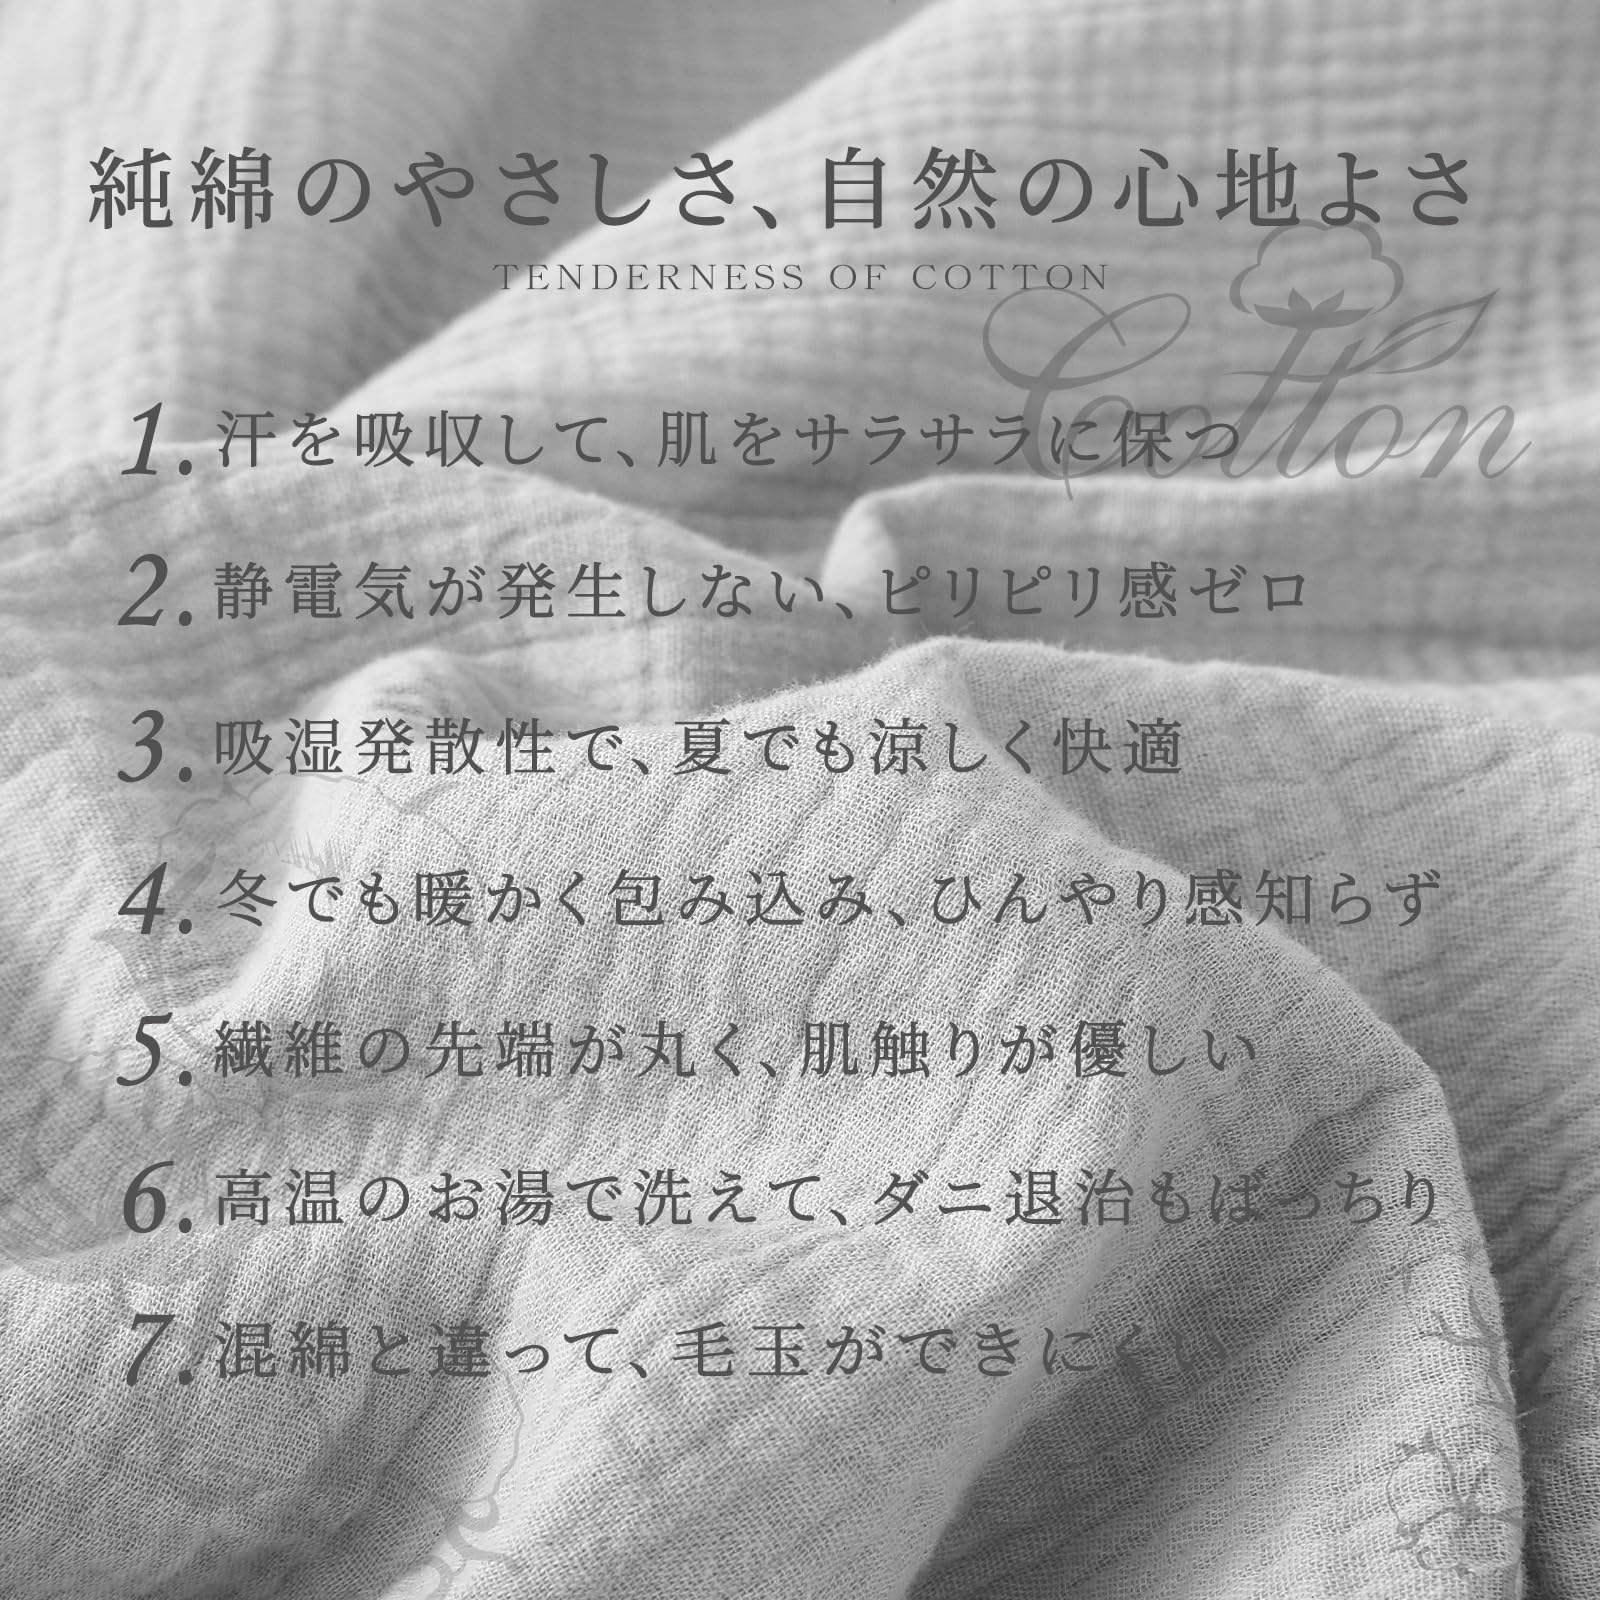 純綿のやさしさ、自然の心地よさ
TENDERNESS OF COTTON
Cotton
1. 汗を吸収して、肌をサラサラに保つ
2. 静電気が発生しない、ピリピリ感ゼロ
3. 吸湿発散性で、夏でも涼しく快適
4. 冬でも暖かく包み込み、ひんやり感知らず
5. 繊維の先端が丸く、肌触りが優しい
6. 高温のお湯で洗えて、ダニ退治もばっちり
7. 混綿と違って、毛玉ができにくい